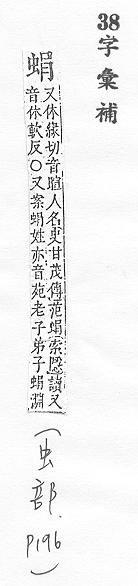 38字彙補
蜎
又休緣切音暄人名史甘茂傳范蜎索隱讀又
音休軟反〇又案蜎姓亦音苑老子弟子蜎淵
(虫部.
P196)